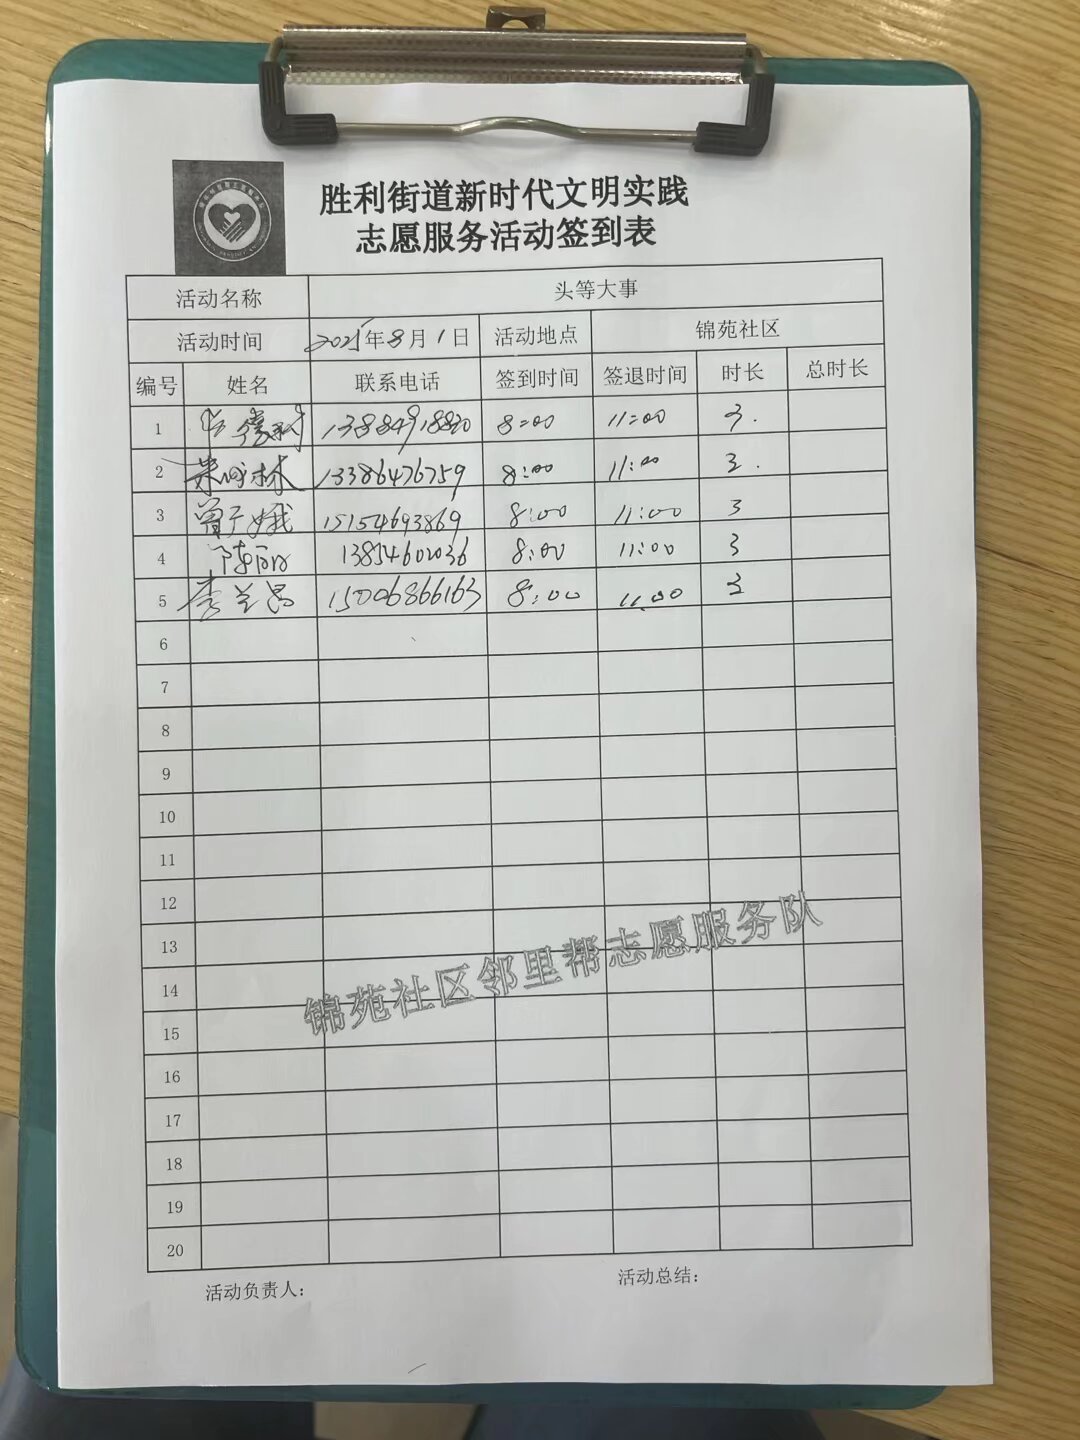 胜利街道新时代文明实践
志愿服务活动签到表
活动名称 头等大事
活动时间 2025年8月1日 活动地点 锦苑社区
编号 姓名 联系电话 签到时间 签退时间 时长 总时长
1 13884918880 8:00 11:00 3.
2 朱成林 13386476759 8:00 11:00 3.
3 曾广娥 15154693869 8:00 11:00 3
4 陈丽 13854602036 8:00 11:00 3
5 李兰昌 15006866163 8:00 11:00 3
6
7
8
9
10
11
12
13
14
15
16
17
18
19
20
锦苑社区邻里帮志愿服务队
活动负责人： 活动总结：